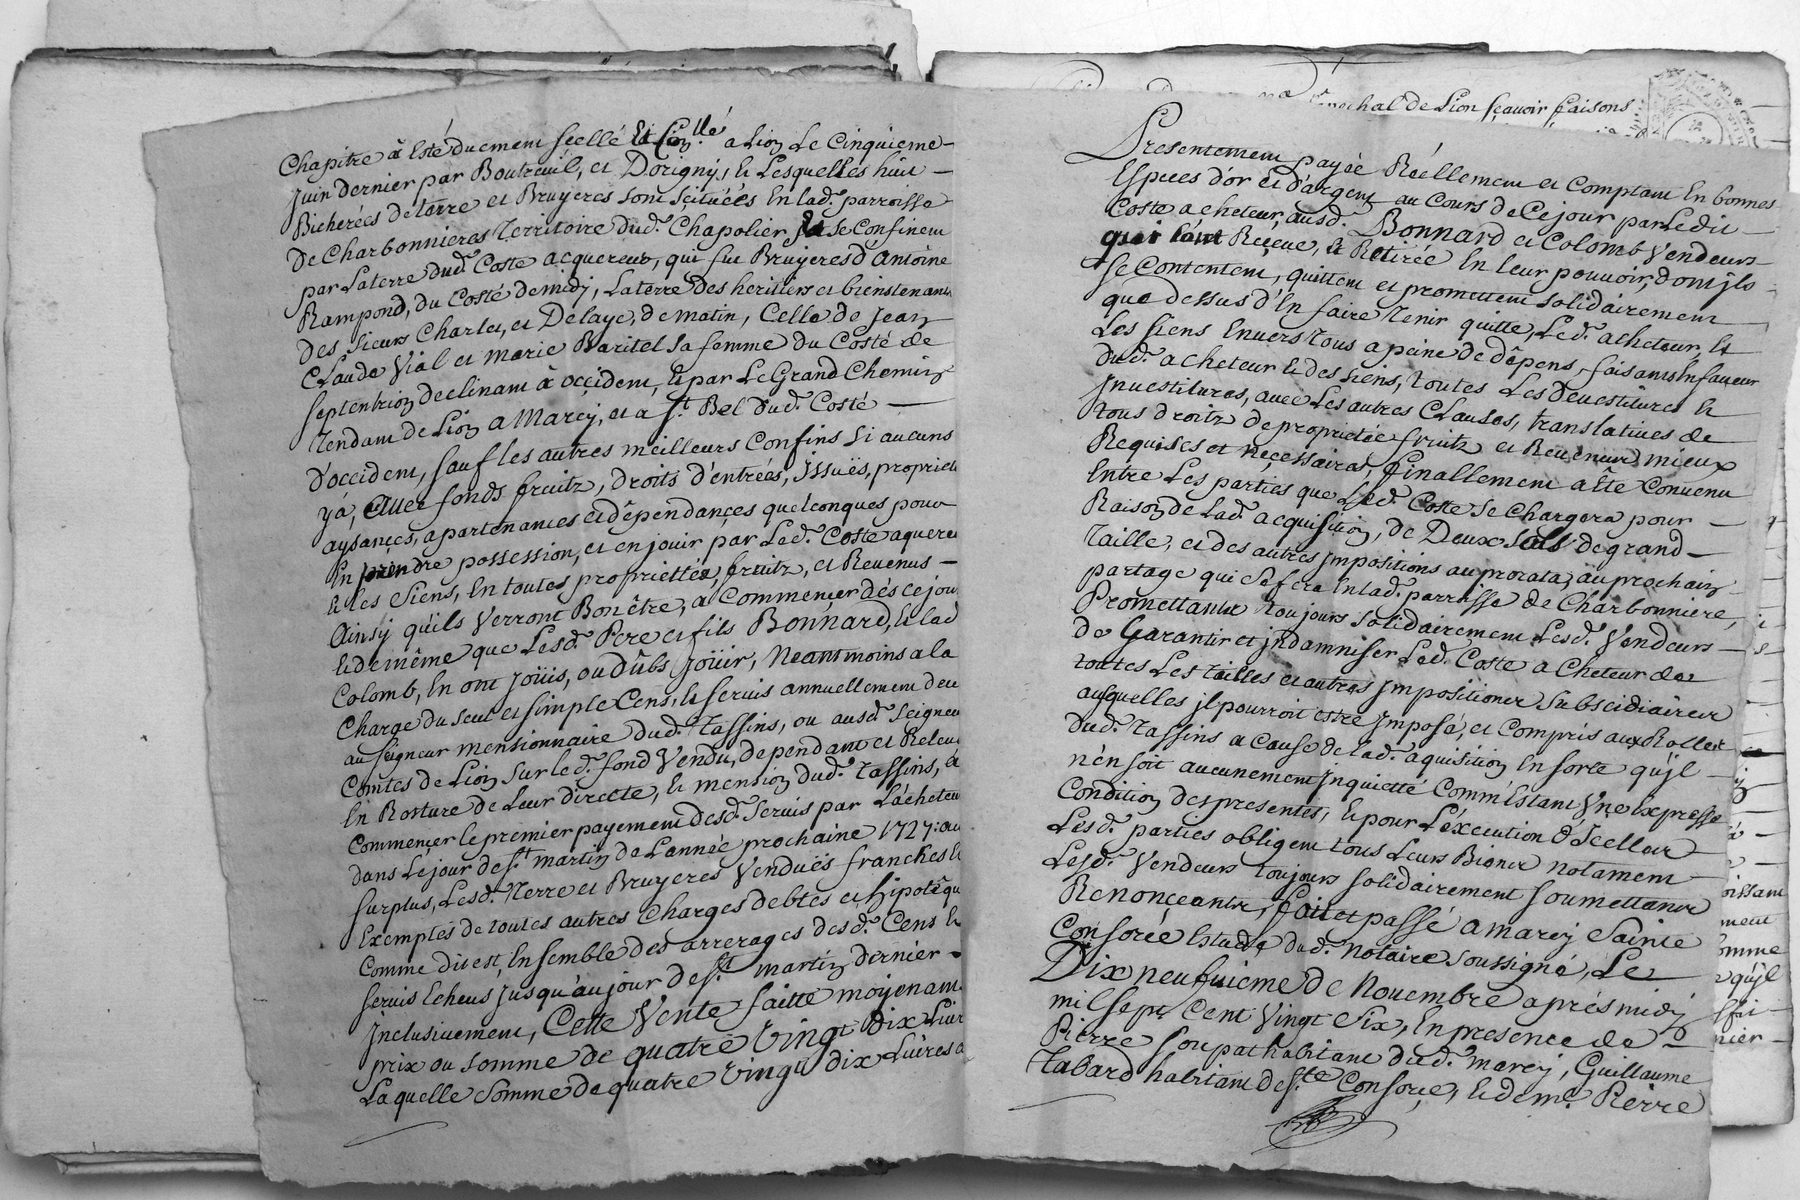 Chapitre â Esté duement scellé Et Con.llé a Lion Le Cinquieme
Juin dernier par Boutreuil, et Dorigny, & Lesquelles huit
Bicherées de terre et Bruyeres sont scituées En lad. parroisse
de Charbonnieres Territoire dud. Chapolier se Confinent
par La terre dud. Coste acquereur, qui fut Bruyeres d'Antoine
Rampond, du Costé de midy, La terre des heritiers et bienstenants
des Sieurs Charlet, et Delaye, de matin, Celle de Jean
CLaude Vial et marie Baritel sa femme du Costé de
septentrion declinant â occident, & par Le Grand Chemin
Tendant de Lion a Marcy, et a S.t Bel dud. Costé
d'occident, sauf les autres meilleurs Confins si aucuns
y a, Avec fonds fruitz, droits d'entrées, issuës, propriet
aysances, apartenances et dépendances quelconques pour
En prendre possession, et en jouir par Led. Coste aquere
& les Siens, En toutes proprietés, fruitz, et Reuenus
Ainsy qu'ils Verront Bon être, a Commencer dés ce jour
& de même que Lesd. Pere et fils Bonnard, & lad
Colomb, En ont joüis, ou dûbs joüir, Neantmoins a la
Charge du seul et simple Cens, & servis annuellement deu
au seigneur mensionnaire dud. Tassins, ou ausd. Seigneu
Comtes de Lion sur led. fond Vendu, dependant et Releu
En Rosture de Leur directe, & mension dud. Tassins, â
Commencer le premier payement desd. Servis par L'acheteu
dans Le jour de S.t martin de L'année prochaine 1727: au
surplus, Lesd. Terre et Bruyeres Venduës franches &
Exemptes de toutes autres Charges debtes et hipotêqu
Comme dit est, Ensemble des arrerages desd. Cens &
servis Echeus jusqu'au jour de S.t martin dernier
Inclusivement, Cette Vente faitte moyenant
prix ou somme de quatre Vingt dix Livr
Laquelle Somme de quatre Vingt dix Livres a
nechal de Lion sçavoir faisons
Presentement payée Réellement et Comptant En bonnes
Especes d'or et d'argent au Cours de Ce jour par Ledit
Coste acheteur, ausd. Bonnard et Colomb Vendeurs
qui l'ont Reçeue, & Retirée En leur pouvoir, dont ils
se Contentent, quittent et promettent solidairement
que dessus d'En faire Tenir quitte, Led. acheteur, Et
Les siens Envers Tous a peine de dépens, faisants En faveur
dud. acheteur & des siens, toutes Les Devestitures &
Investitures, avec Les autres Clauses, translatives de
tous droitz de proprietée fruitz et Revenus, mieux
Requises et neçessaires, finallement a Ete Convenu
Entre Les parties que Led. Coste se Chargera pour
Raison de Lad. acquisition, de Deux sols de grand
Taille, et des autres Impositions au prorata, au prochain
partage qui Se fera En lad. parroisse de Charbonniere,
Promettants toujours solidairement Lesd. Vendeurs
de Garantir et indamniser Led. Coste acheteur de
toutes Les tailles et autres Impositions Subscidiaires
ausquelles jl pourroit estre Imposé, et Compris aux Rolles
dud. Tassins a Cause de lad. aquisition En sorte qu'jl
n'en soit aucunement inquietté Comm'Estant Vne expresse
Condition des presentes, & pour L'éxecution d'Icelles
Lesd. parties obligent tous Leurs Biens notament
Lesd. Vendeurs toujours solidairement soumettants
Renonçeants, fait et passé a marcy Sainte
Consorce Estude dud. notaire soussigné, Le
Dix neufuieme de Nouembre aprés midy
mil sept Cent Vingt six, En presence de
Pierre Soupat habitant dud. marcy, Guillaume
Tabard habitant de S.te Consorçe, & de m.e Pierre
oissant
ment
omme
qu'jl
nier